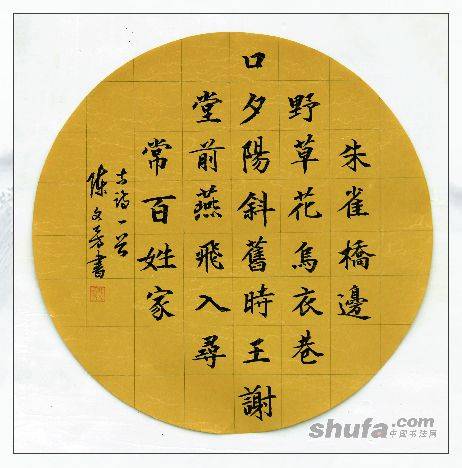 朱雀橋邊
野草花烏衣巷
口夕陽斜舊時王謝
堂前燕飛入尋
常百姓家
古詩一首
陳文書
shufa.com
中国书法网